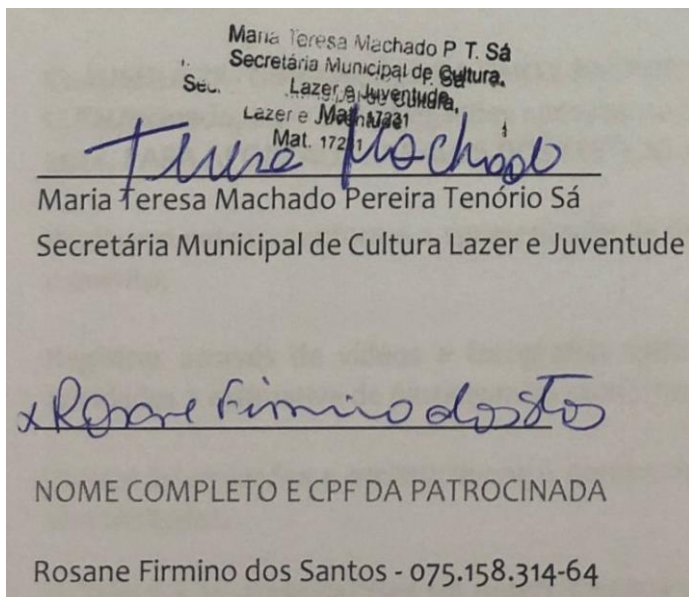 Maria Teresa Machado P. T. Sá
Secretária Municipal de Cultura,
Lazer e Juventude
Mat. 17231
Teresa Machado
Maria Teresa Machado Pereira Tenório Sá
Secretária Municipal de Cultura Lazer e Juventude
x Rosane Firmino dos Stos
NOME COMPLETO E CPF DA PATROCINADA
Rosane Firmino dos Santos - 075.158.314-64